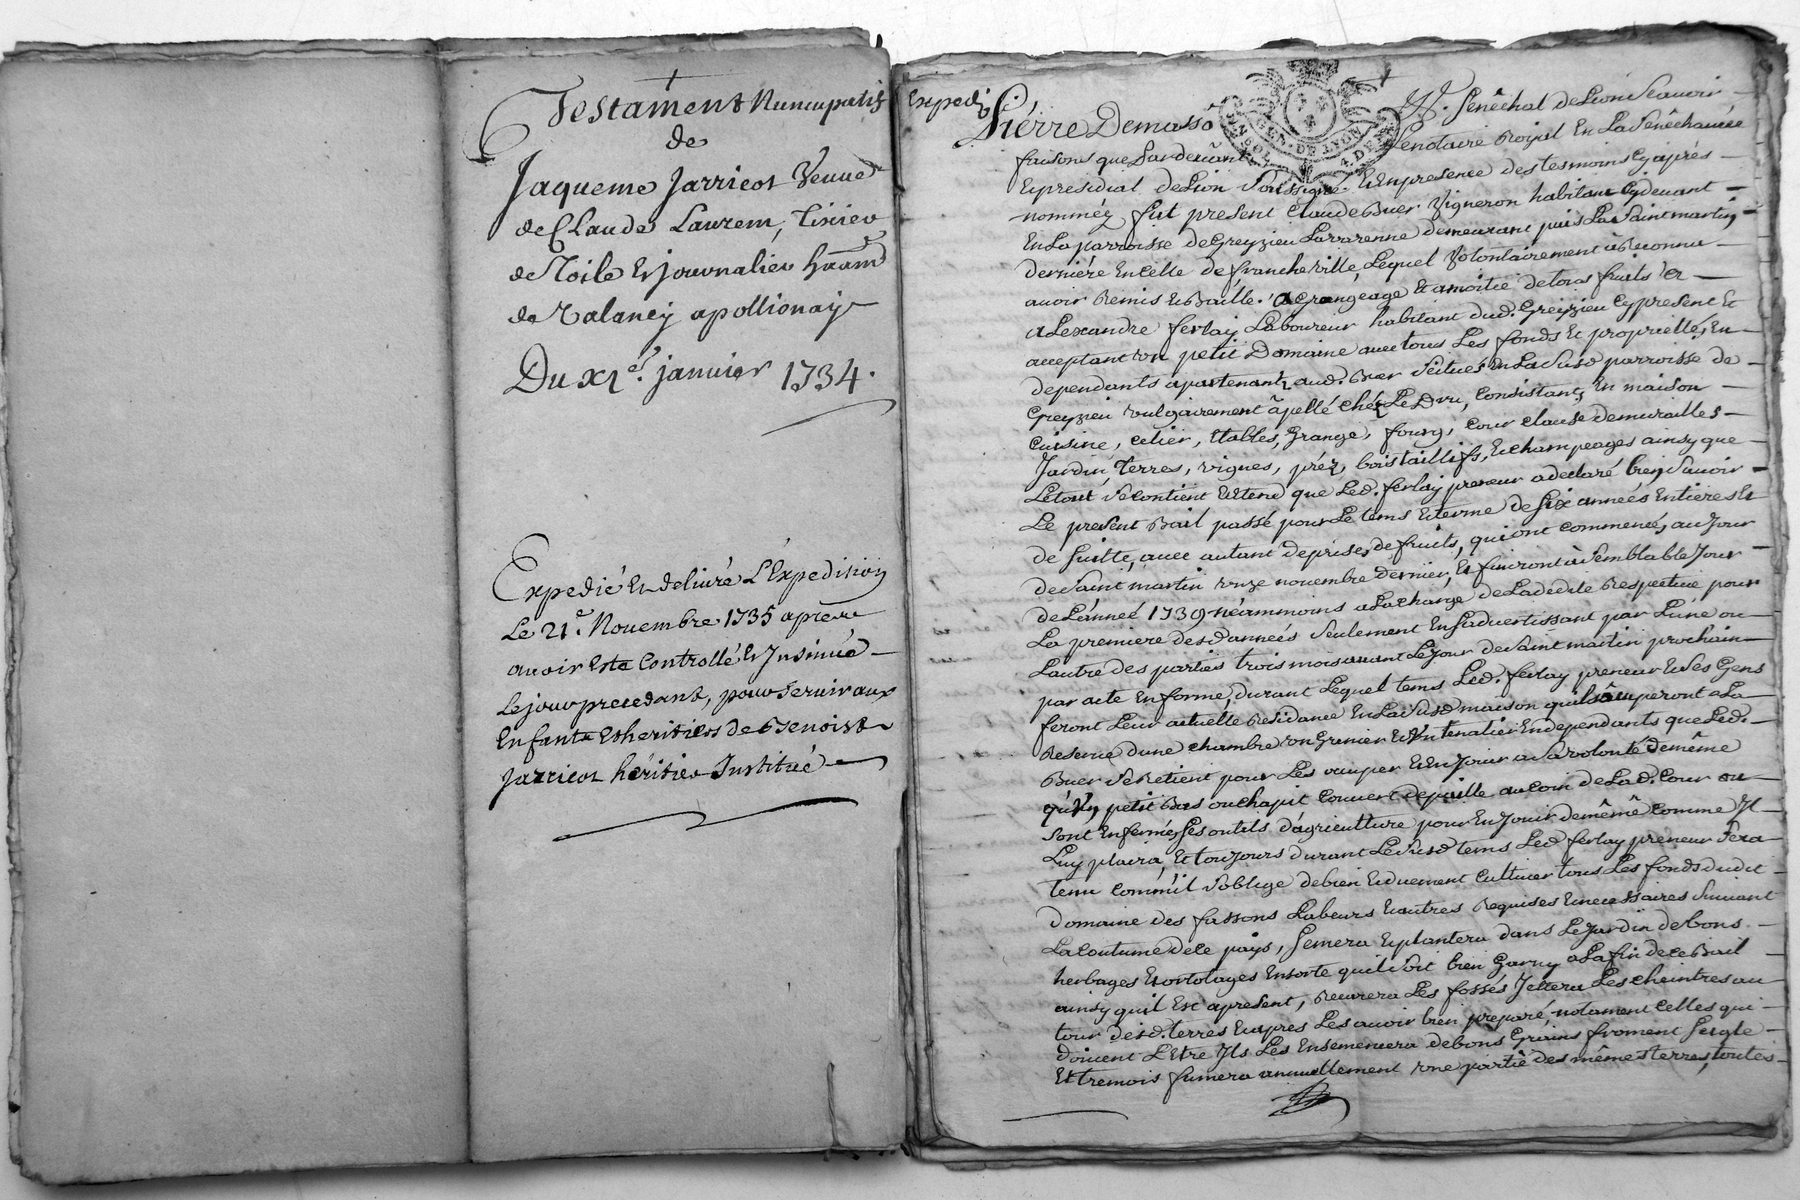 Testament Nuncupatif
de
Jaqueme Jarricot Veuve
de Claude Laurent, Tixier
de Toile Et journalier
de apollionay
Du XIe. janvier 1734.
Expedié Et delivré L'Expedision
Le 21e. Novembre 1735 apres
avoir Esté Controllé Et Insinué
Le jour precedant, pour Servir aux
Enfants Et heritiers de Benoist
Jarricot héritier Institué
Expedié
Pierre Demasso Sénéchal de Lion Scavoir
GEN. DE LYON
faisons que Pardevant Le notaire Royal En La Sénéchaussée
Et presidial de Lion Soussigné Et En presence des tesmoins Cy aprés
nommés fut present Claude Buer Vigneron habitant Cy devant
En La parroisse de Greyzieu Lavarenne demeurant puis La Saint martin
derniére En celle de francheville, Lequel Volontairement à Reconnu
avoir Remis Et Baillé. A Grangeage Et amoitié de tous fruits Et
Alexandre ferlay Laboureur habitant dud. Greyzieu Cy present Et
acceptant un petit Domaine avec tous Les fonds Et proprietés, En
dependants apartenants aud. Buer Scitués En La Susd parroisse de
Greyzieu vulgairement âpellé chéz Le Dru, Consistants En maison
Cuisine, Celier, Etables, Grange, fours, Cour clause de murailles
Jardin, terres, vignes, préz, bois taillifs, Et champeages ainsy que
Le tout Se contient Et tend que Led. ferlay preneur a declaré bien Savoir
Le present Bail passé pour Le tems Et terme de Six années Entieres Et
de Suitte, avec autant de prises de fruits, qui ont commencés au Jour
de Saint martin onze novembre dernier, Et finiront à Semblable Jour
de L'année 1739 néammoins a La charge de La dedite Respective pour
La premiere desd années Seulement En S'advertissant par L'une ou
L'autre des parties trois mois avant Le Jour de Saint martin prochain
par acte En forme, durant Lequel tems Led. ferlay preneur Et Ses Gens
feront Leur actuelle Residance En La Susd maison qu'ils ôccuperont a La
Reserve d'une chambre un Grenier Et En dependants que Led.
Buer Se Retient pour Les occuper Et En Jouir a Sa volonté de même
qu'un petit Bas ou chapit Couvert de paille au Coin de Lad. Cour ou
Sont Enfermés Ses outils d'agriculture pour En Jouir de même comme Il
Luy plaira, Et toujours durant Le Susd tems Led ferlay preneur Sera
tenu Comm'il S'oblige de bien Et duement Cultiver tous Les fonds dudit
domaine des fassons Labeurs Et autres Requises Et necessaires Suivant
La Coutume de Ce pays, Semera Et plantera dans Le Jardin de bons
herbages Et ortolages En sorte qu'il Soit bien Garny a La fin de ce Bail
ainsy qu'il Est apresent, Recurera Les fossés Jettera Les cheintres au
tour desd. terres Et apres Les avoir bien preparé, notament Celles qui
doivent L'Etre Il Les Ensemencera de bons Grains froment Seigle
Et tremois fumera annuellement une partie des mêmes terres, toutes